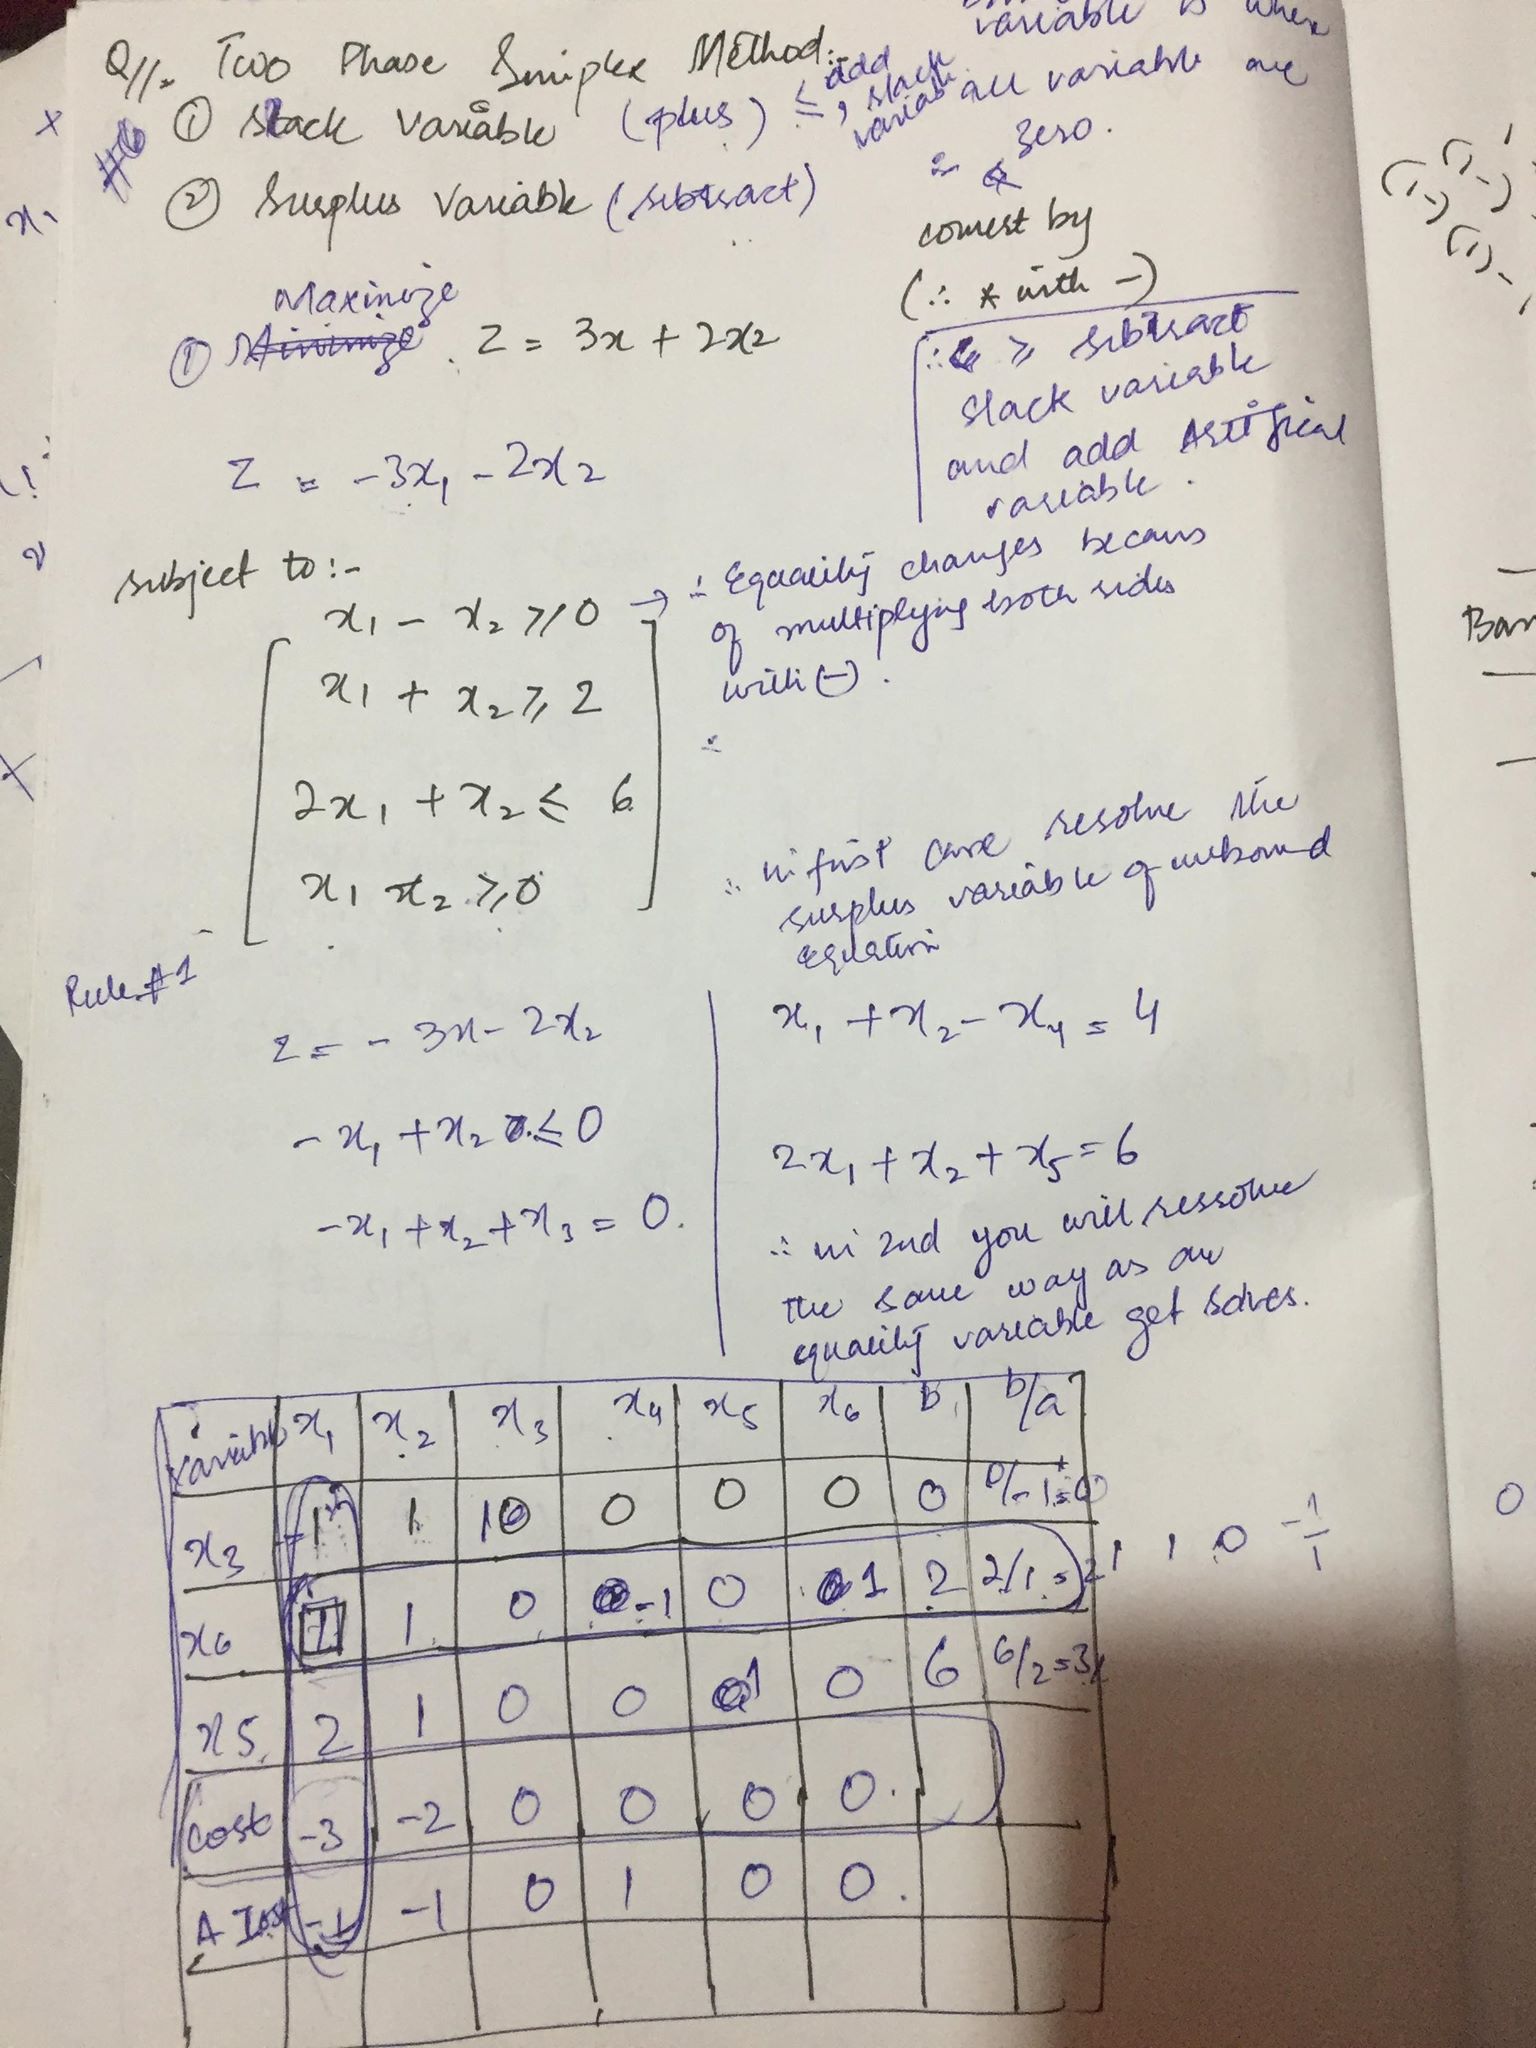 Q//. Two Phase Simplex Method:-
① Slack Variable (plus) ≤, add slack variable
② Surplus Variable (subtract)
variable is when
all variable are
zero.
comest by
(∴ * with -)
∴ ≥ subtract
slack variable
and add Artifical
variable.
#6
Maximize
① Minimize Z = 3x + 2x2
Z = -3x1 - 2x2
subject to:-
x1 - x2 ≥ 0 →
x1 + x2 ≥ 2
2x1 + x2 ≤ 6
x1 x2 ≥ 0
∴ Equality changes becaus
of multiplying both sides
with (-).
∴ in first case resolve the
surplus variable of unbound
equation
Rule #1
Z = - 3x - 2x2
-x1 + x2 ≤ 0
-x1 + x2 + x3 = 0.
x1 + x2 - x4 = 4
2x1 + x2 + x5 = 6
∴ in 2nd you will ressolve
the same way as an
equality variable get solves.
variable x1 x2 x3 x4 x5 x6 b b/a
x3 -1 1 1 0 0 0 0 0/-1=0
x6 1 1 0 -1 0 1 2 2/1=2
x5 2 1 0 0 1 0 6 6/2=3
Cost -3 -2 0 0 0 0.
A Cost -1 -1 0 1 0 0.
1 1 0 -1/1
x
x1
0